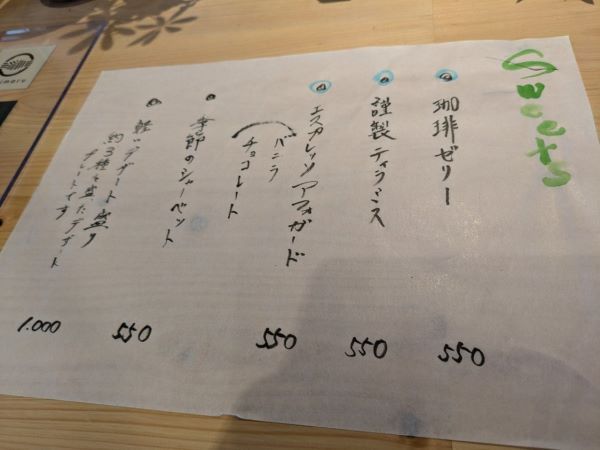 Sweets
珈琲ゼリー
550
謹製ティラミス
550
エスプレッソアフォガード
バニラ
チョコレート
550
季節のシャーベット
550
軽いデザート盛り
約3種を盛たデザート
プレートです
1.000